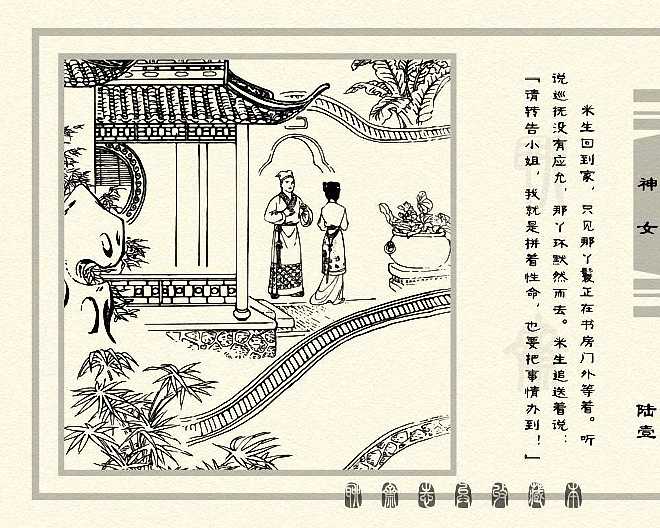 米生回到家，只见那丫鬟正在书房门外等着。听
说巡抚没有应允，那丫环默然而去。米生追送着说：
“请转告小姐，我就是拼着性命，也要把事情办到！”
神女
陆壹
聊斋志异收藏本